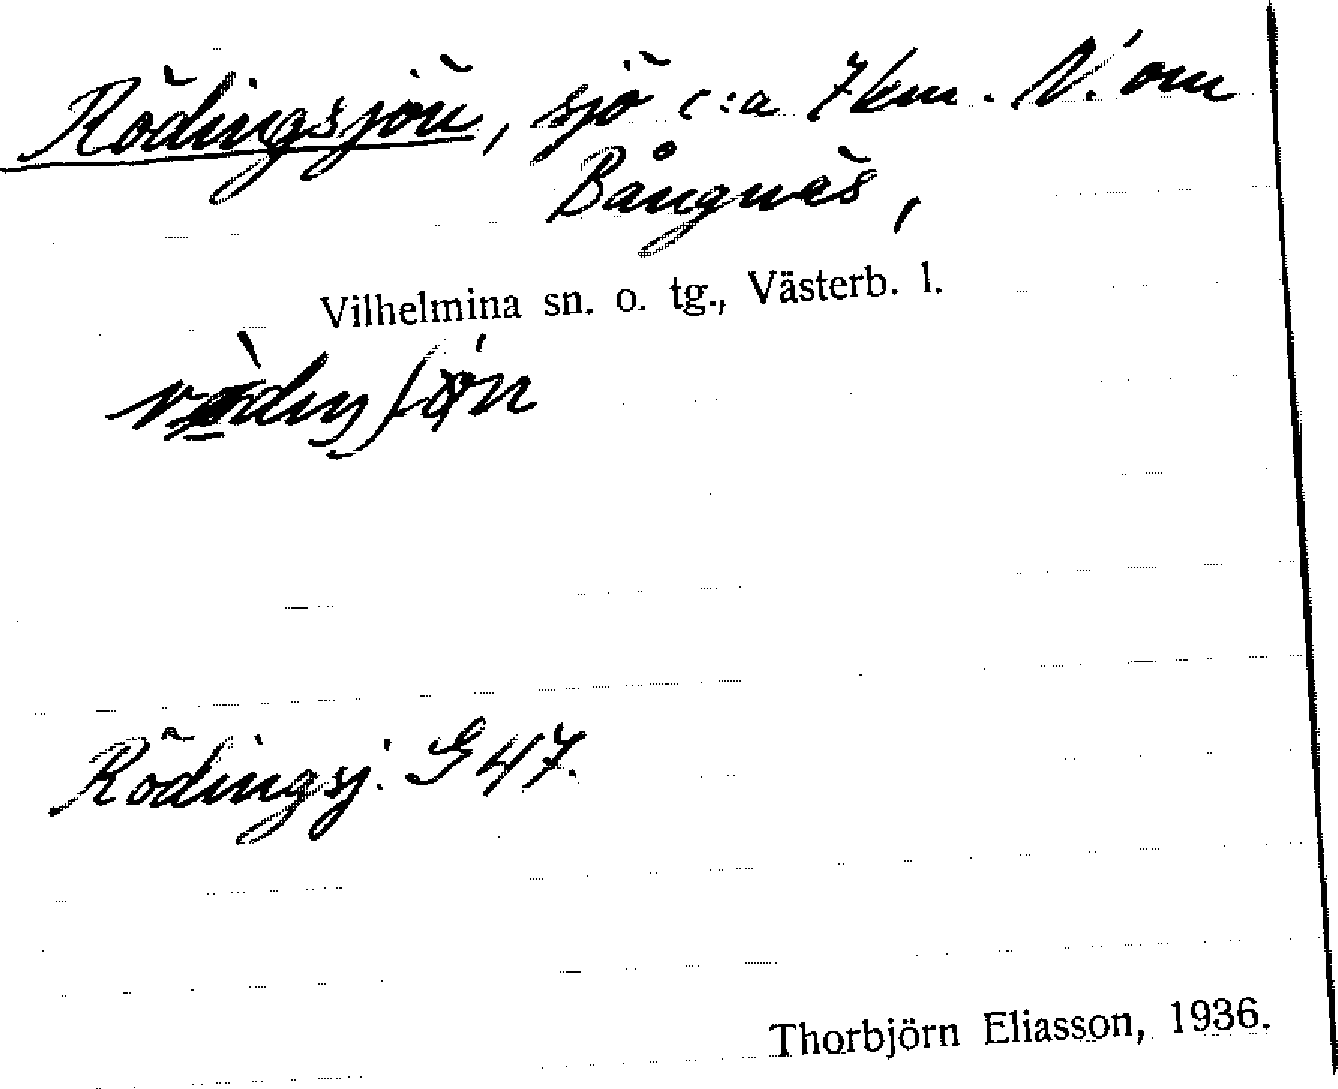 Rödingsjön, sjö c:a 7 km. N. om
Bångnäs,
Vilhelmina sn. o. tg., Västerb. l.
Rödingsj. G 47.
Thorbjörn Eliasson, 1936.